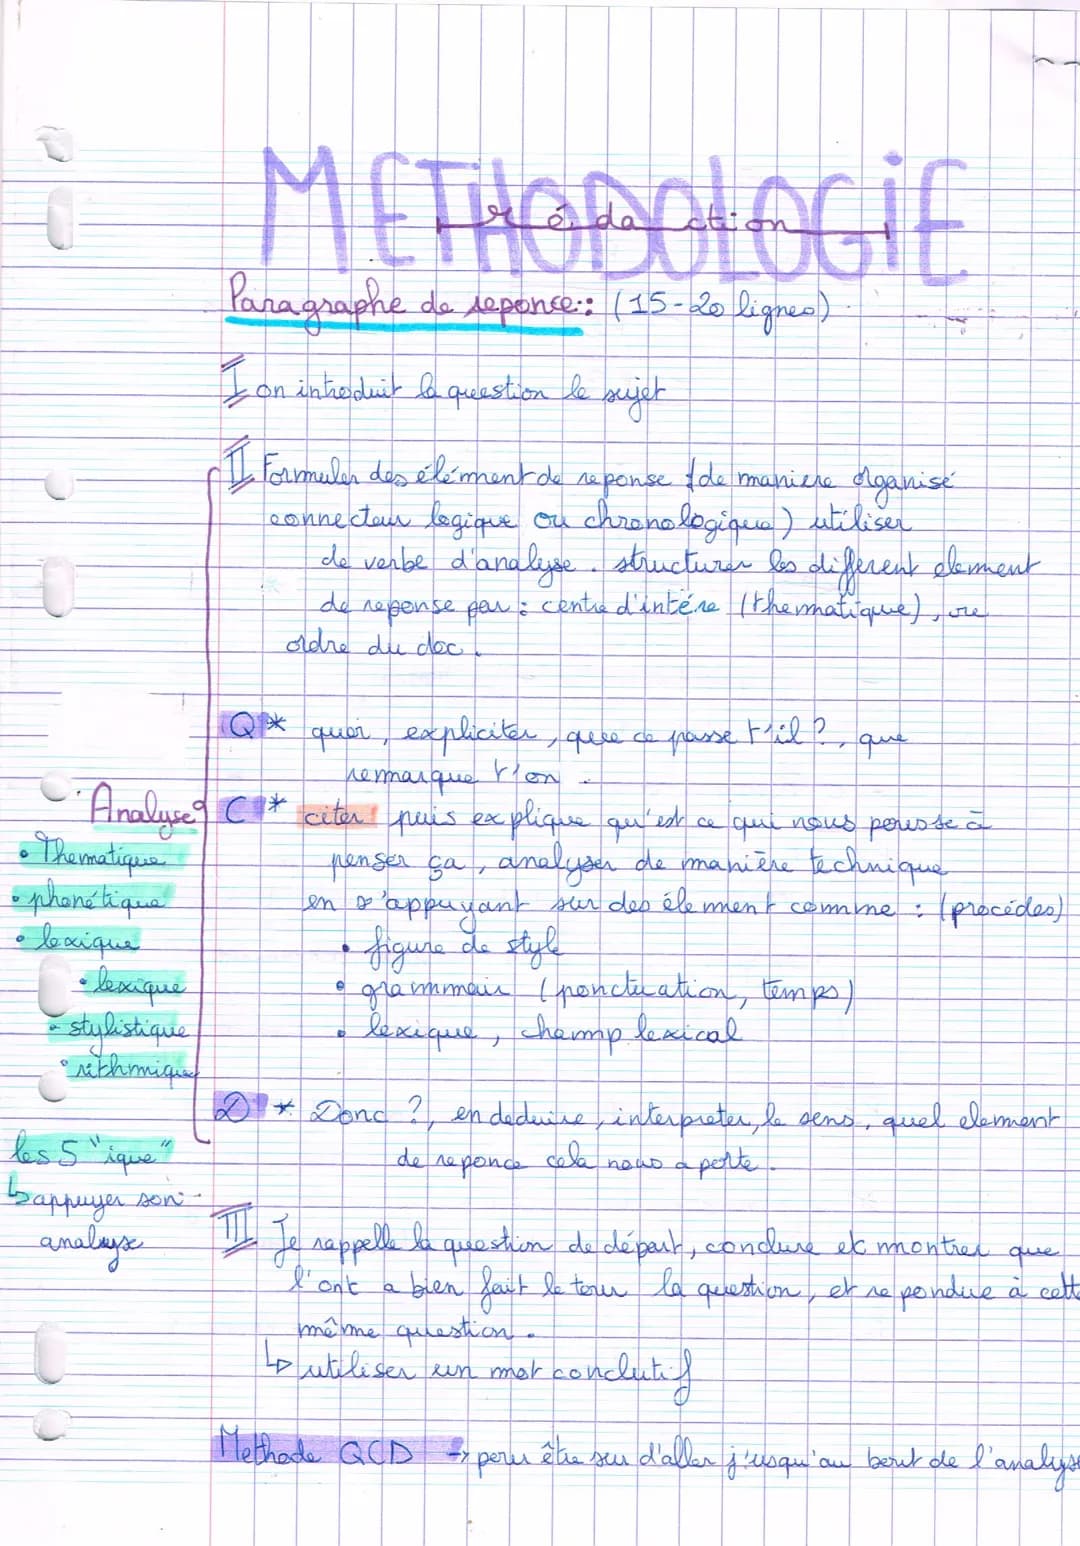 METHODOLOGIE
rédaction
Paragraphe de reponce : (15-20 lignes)
I on introduit la question le sujet
II Formuler des élémment de reponse (de maniere organisé
connecteur logique ou chronologique) utiliser
de verbe d'analyse. structurer les different element
de reponse par : centre d'intére (thermatique), ou
ordre du doc.
Q * quoi, expliciter, que ce passe t'il ?, que
remarque t'on.
C * citer puis explique qu'est ce qui nous pousse à
penser ça, analyser de manière technique
en s'appuyant sur des élement comme : (procédes)
• figure de style
• grammair (ponctuation, temps)
• lexique, champ lexical
D * Donc ?, en deduire, interpreter, le sens, quel element
de reponce cela nous aporte.
Analyse
• Thematique
• phonétique
• lexique
• lexique
• stylistique
• rithmique
les 5 "ique"
↳ appuyer son
analyse
III Je rappelle la question de départ, conclure et montrer que
l'ont a bien fait le tour la question, et repondue à cette
même question.
↳ utiliser un mot conclutif
Methode QCD → pour être sur d'aller j'usqu'au bout de l'analyse